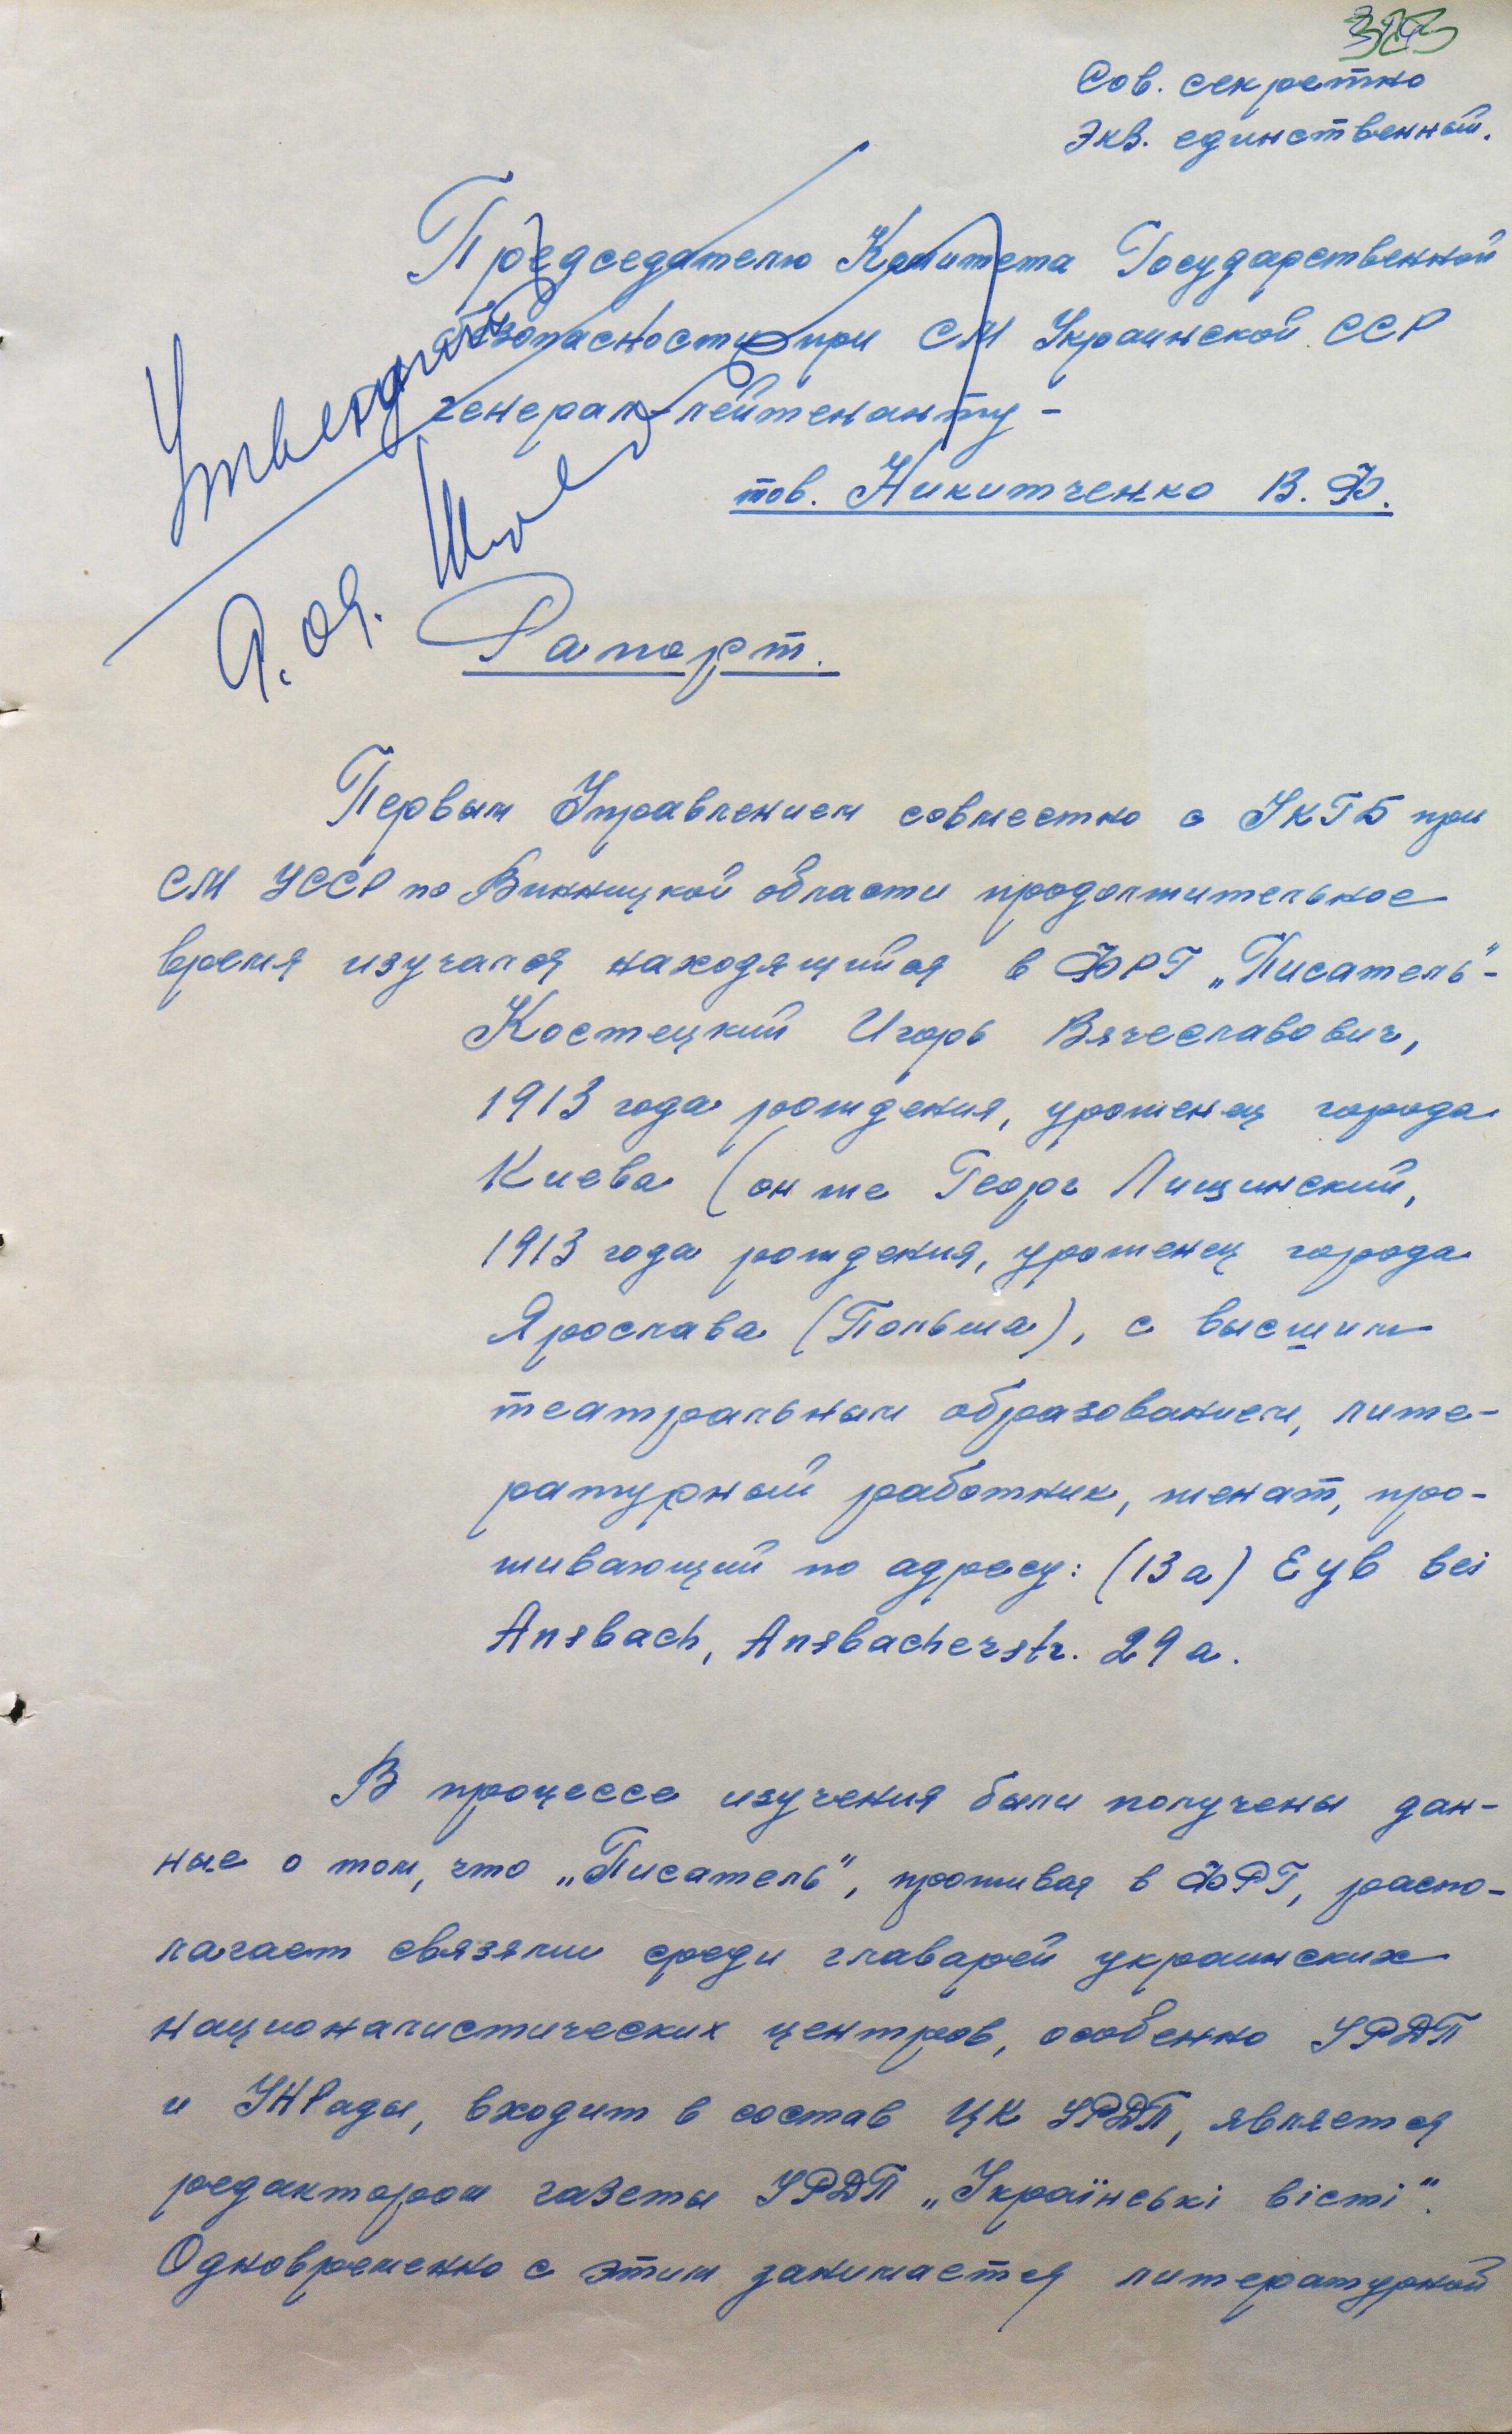 Сов. секретно
Экз. единственный.
Председателю Комитета Государственной
безопасности при СМ Украинской ССР
генерал-лейтенанту -
тов. Никитченко В. Ф.
Рапорт.
Первым Управлением совместно с УКГБ при
СМ УССР по Винницкой области продолжительное
время изучался находящийся в ФРГ „Писатель"-
Костецкий Игорь Вячеславович,
1913 года рождения, уроженец города
Киева (он же Георг Лищинский,
1913 года рождения, уроженец города
Ярослава (Польша), с высшим
театральным образованием, лите-
ратурный работник, женат, про-
живающий по адресу: (13a) Eyb bei
Ansbach, Ansbacherstr. 29a.
В процессе изучения были получены дан-
ные о том, что „Писатель", проживая в ФРГ, распо-
лагает связями среди главарей украинских
националистических центров, особенно УРДП
и УНРады, входит в состав ЦК УРДП, является
редактором газеты УРДП „Українські вісті".
Одновременно с этим занимается литературной